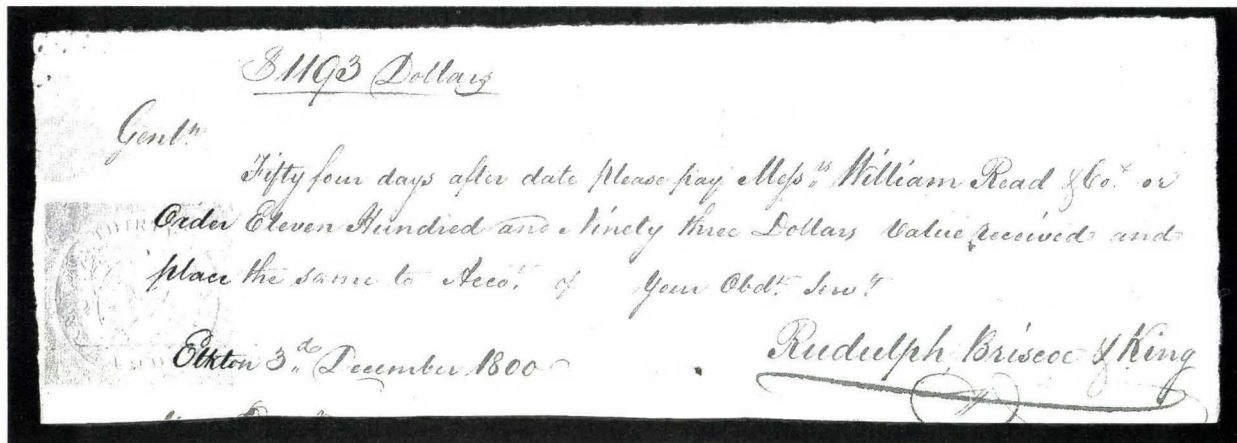 $1193 Dollars
Gentn.
Fifty four days after date please pay Messrs. William Read & Co. or
Order Eleven Hundred and Ninety three Dollars Value received and
place the same to Accot. of Your Obdt. Servt.
Elkton 3d. December 1800
Rudulph, Briscoe & King